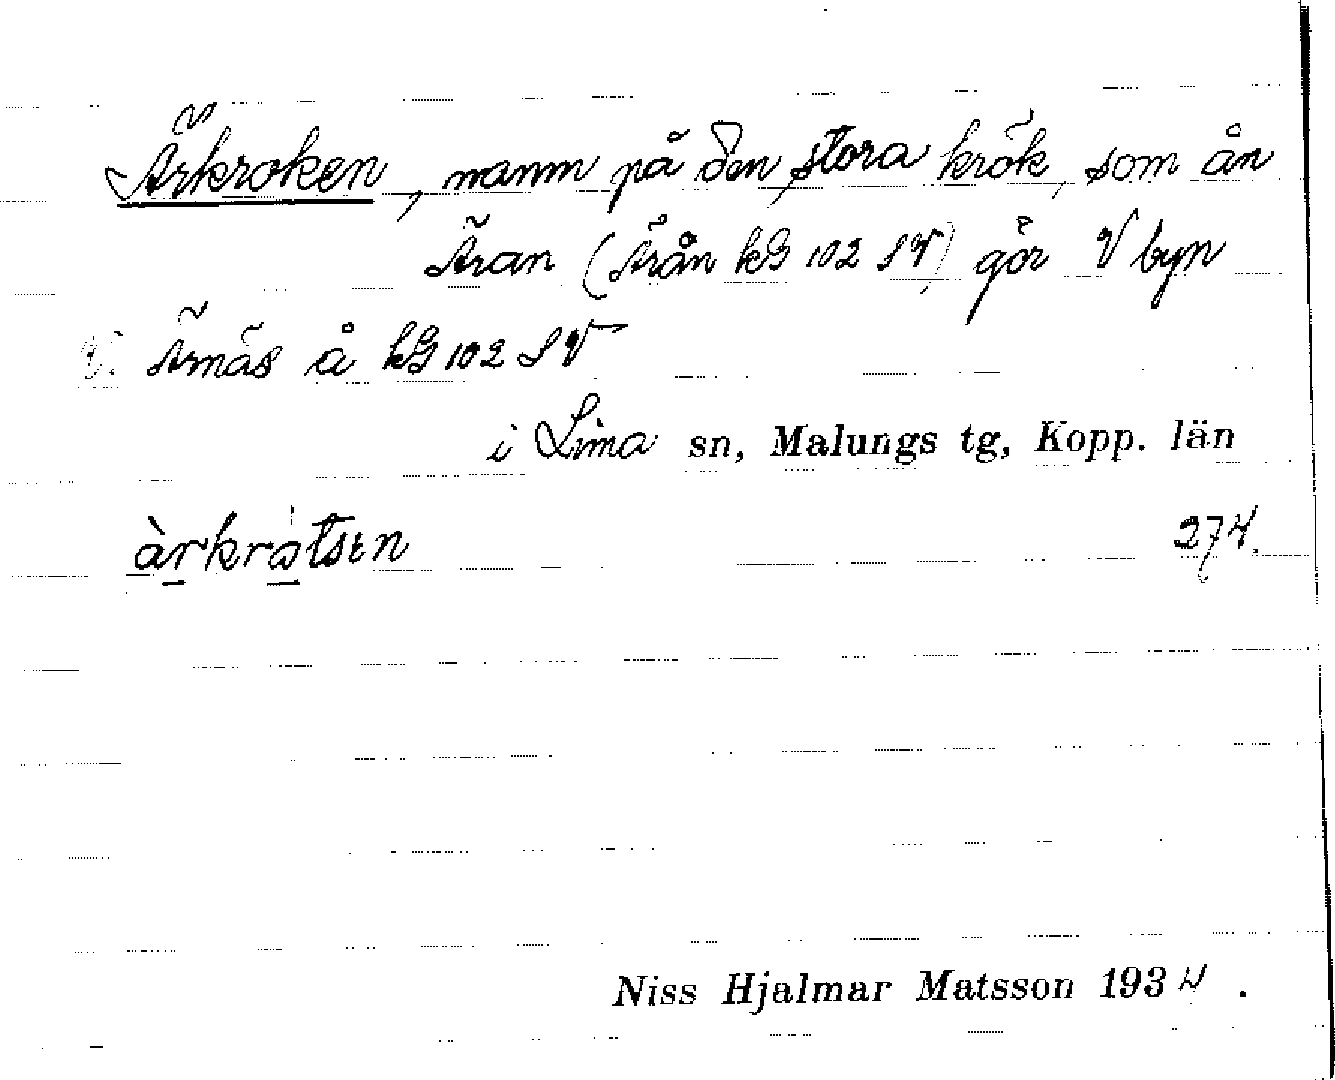 Ärkroken, namn på den stora krök, som ån
Äran (Årån kG 102 SV) gör V byn
V. Ärnäs å kG 102 SV
i Lima sn, Malungs tg, Kopp. län
àrkrɷtsɛn 274.
Niss Hjalmar Matsson 1934.